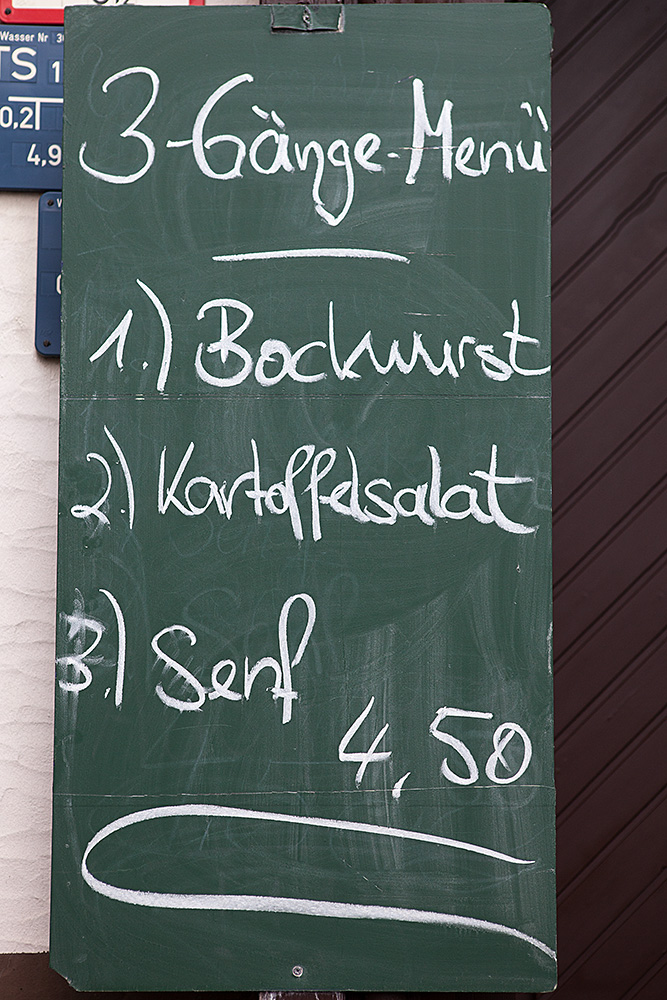 Wasser Nr 3
TS 1
0,2
4,9
3-Gänge-Menü
1.) Bockwurst
2.) Kartoffelsalat
3.) Senf
4,50